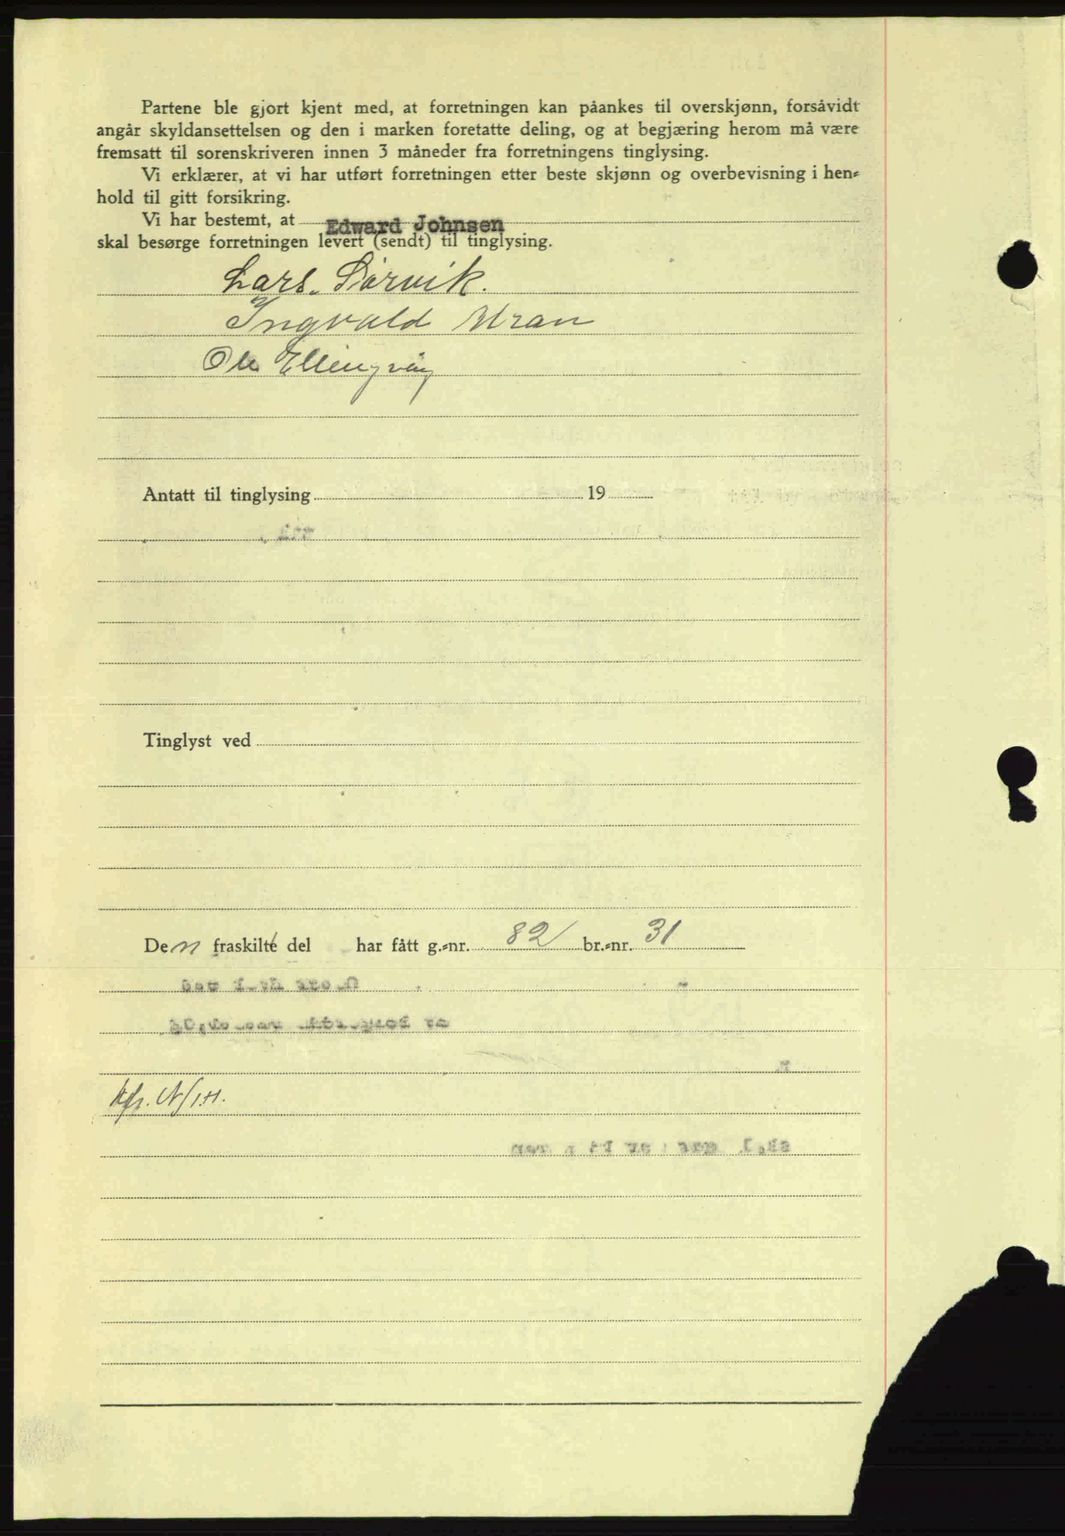 Partene ble gjort kjent med, at forretningen kan påankes til overskjønn, forsåvidt
angår skyldansettelsen og den i marken foretatte deling, og at begjæring herom må være
fremsatt til sorenskriveren innen 3 måneder fra forretningens tinglysing.
Vi erklærer, at vi har utført forretningen etter beste skjønn og overbevisning i hen-
hold til gitt forsikring.
Vi har bestemt, at Edward Johnsen
skal besørge forretningen levert (sendt) til tinglysing.
Lars Sörvik.
Ingvald Uran
Ole Ellingvåg
Antatt til tinglysing 19
Tinglyst ved
Den fraskilte del har fått g.-nr. 82 br.-nr. 31